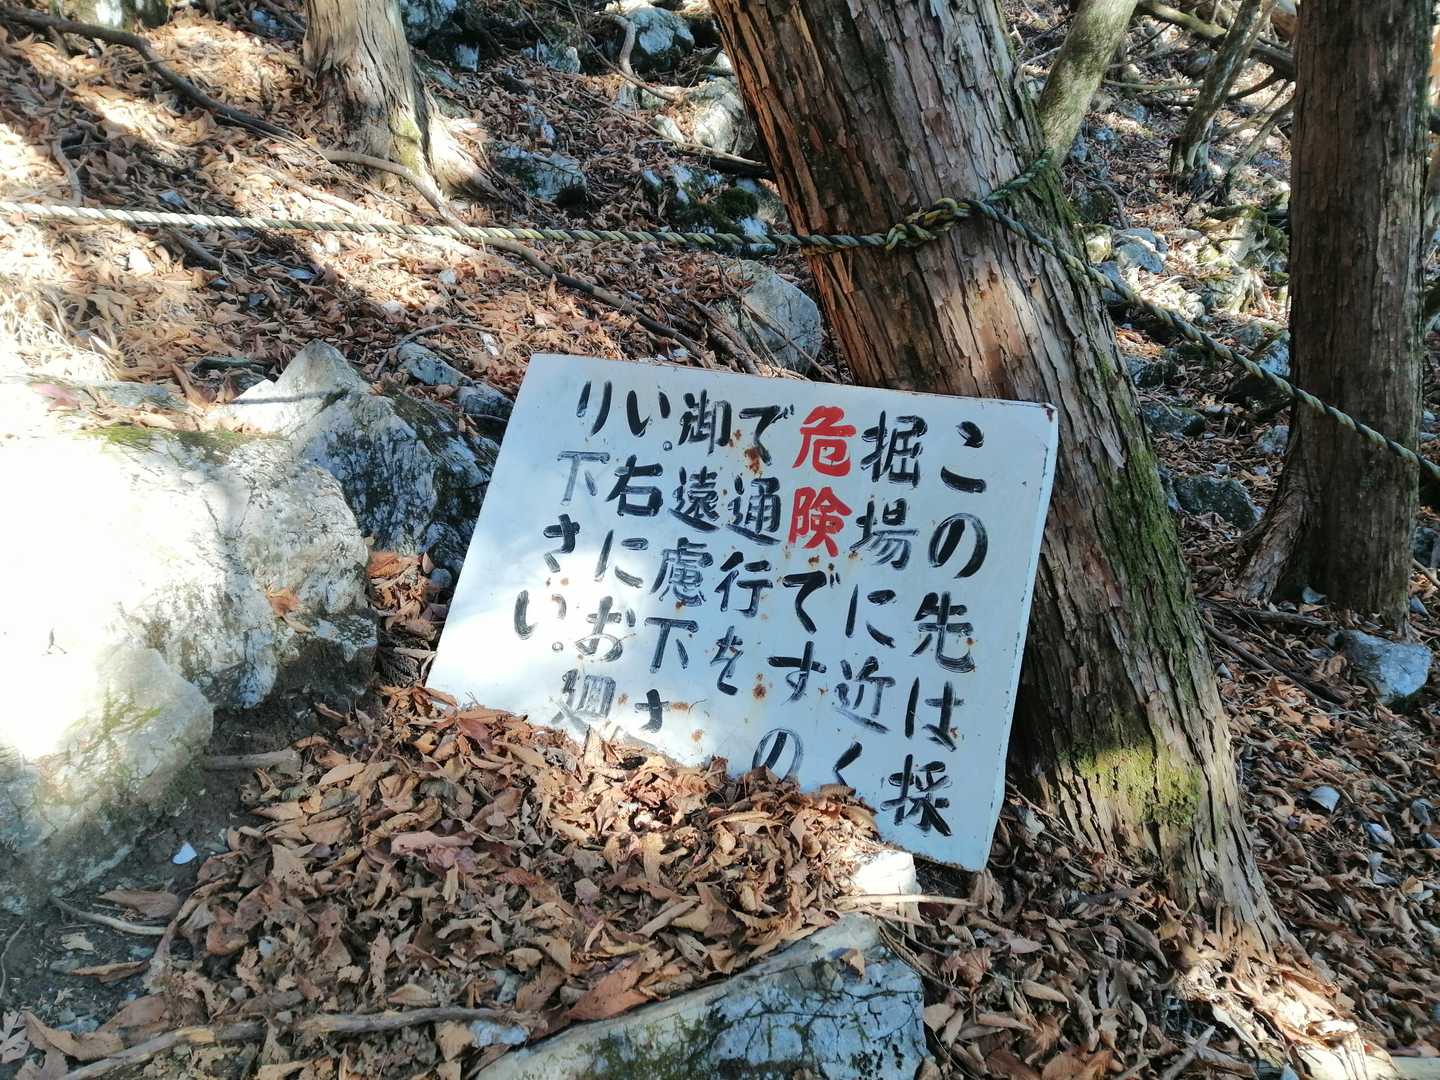 この先は採
掘場に近く
危険ですの
で通行を
御遠慮下さ
い。右にお廻
り下さい。